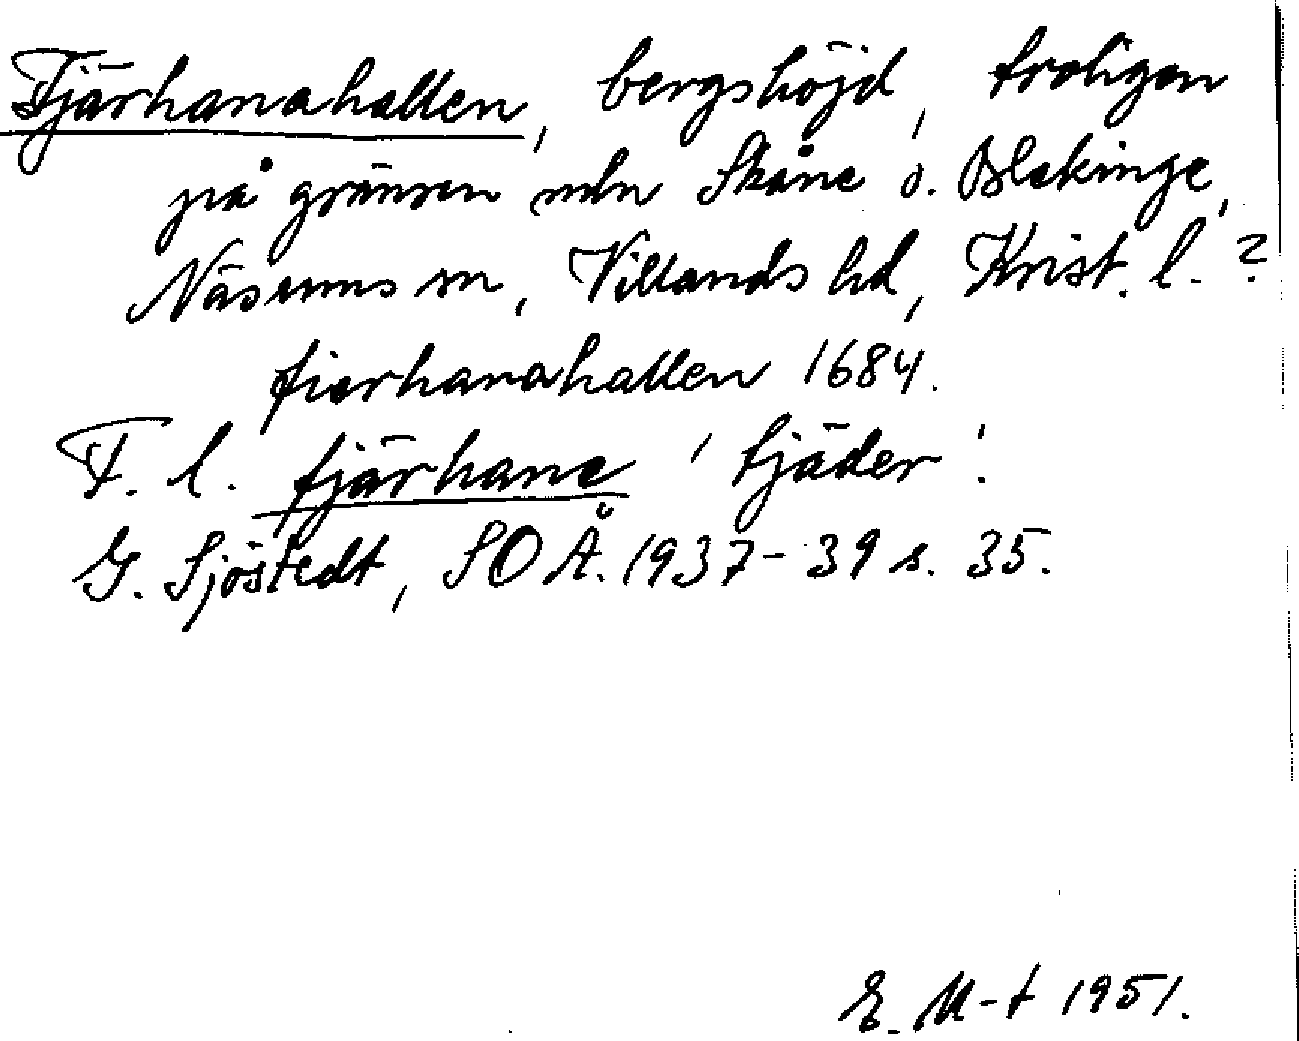 Tjärhanahallen, bergshöjd, troligen
på gränsen mln Skåne o. Blekinge,
Näsums sn, Villands hd, Krist. l.?
tierhanahallen 1684.
F. l. tjärhane 'tjäder'.
G. Sjöstedt, SOÅ. 1937-39 s. 35.
E. M-t 1951.